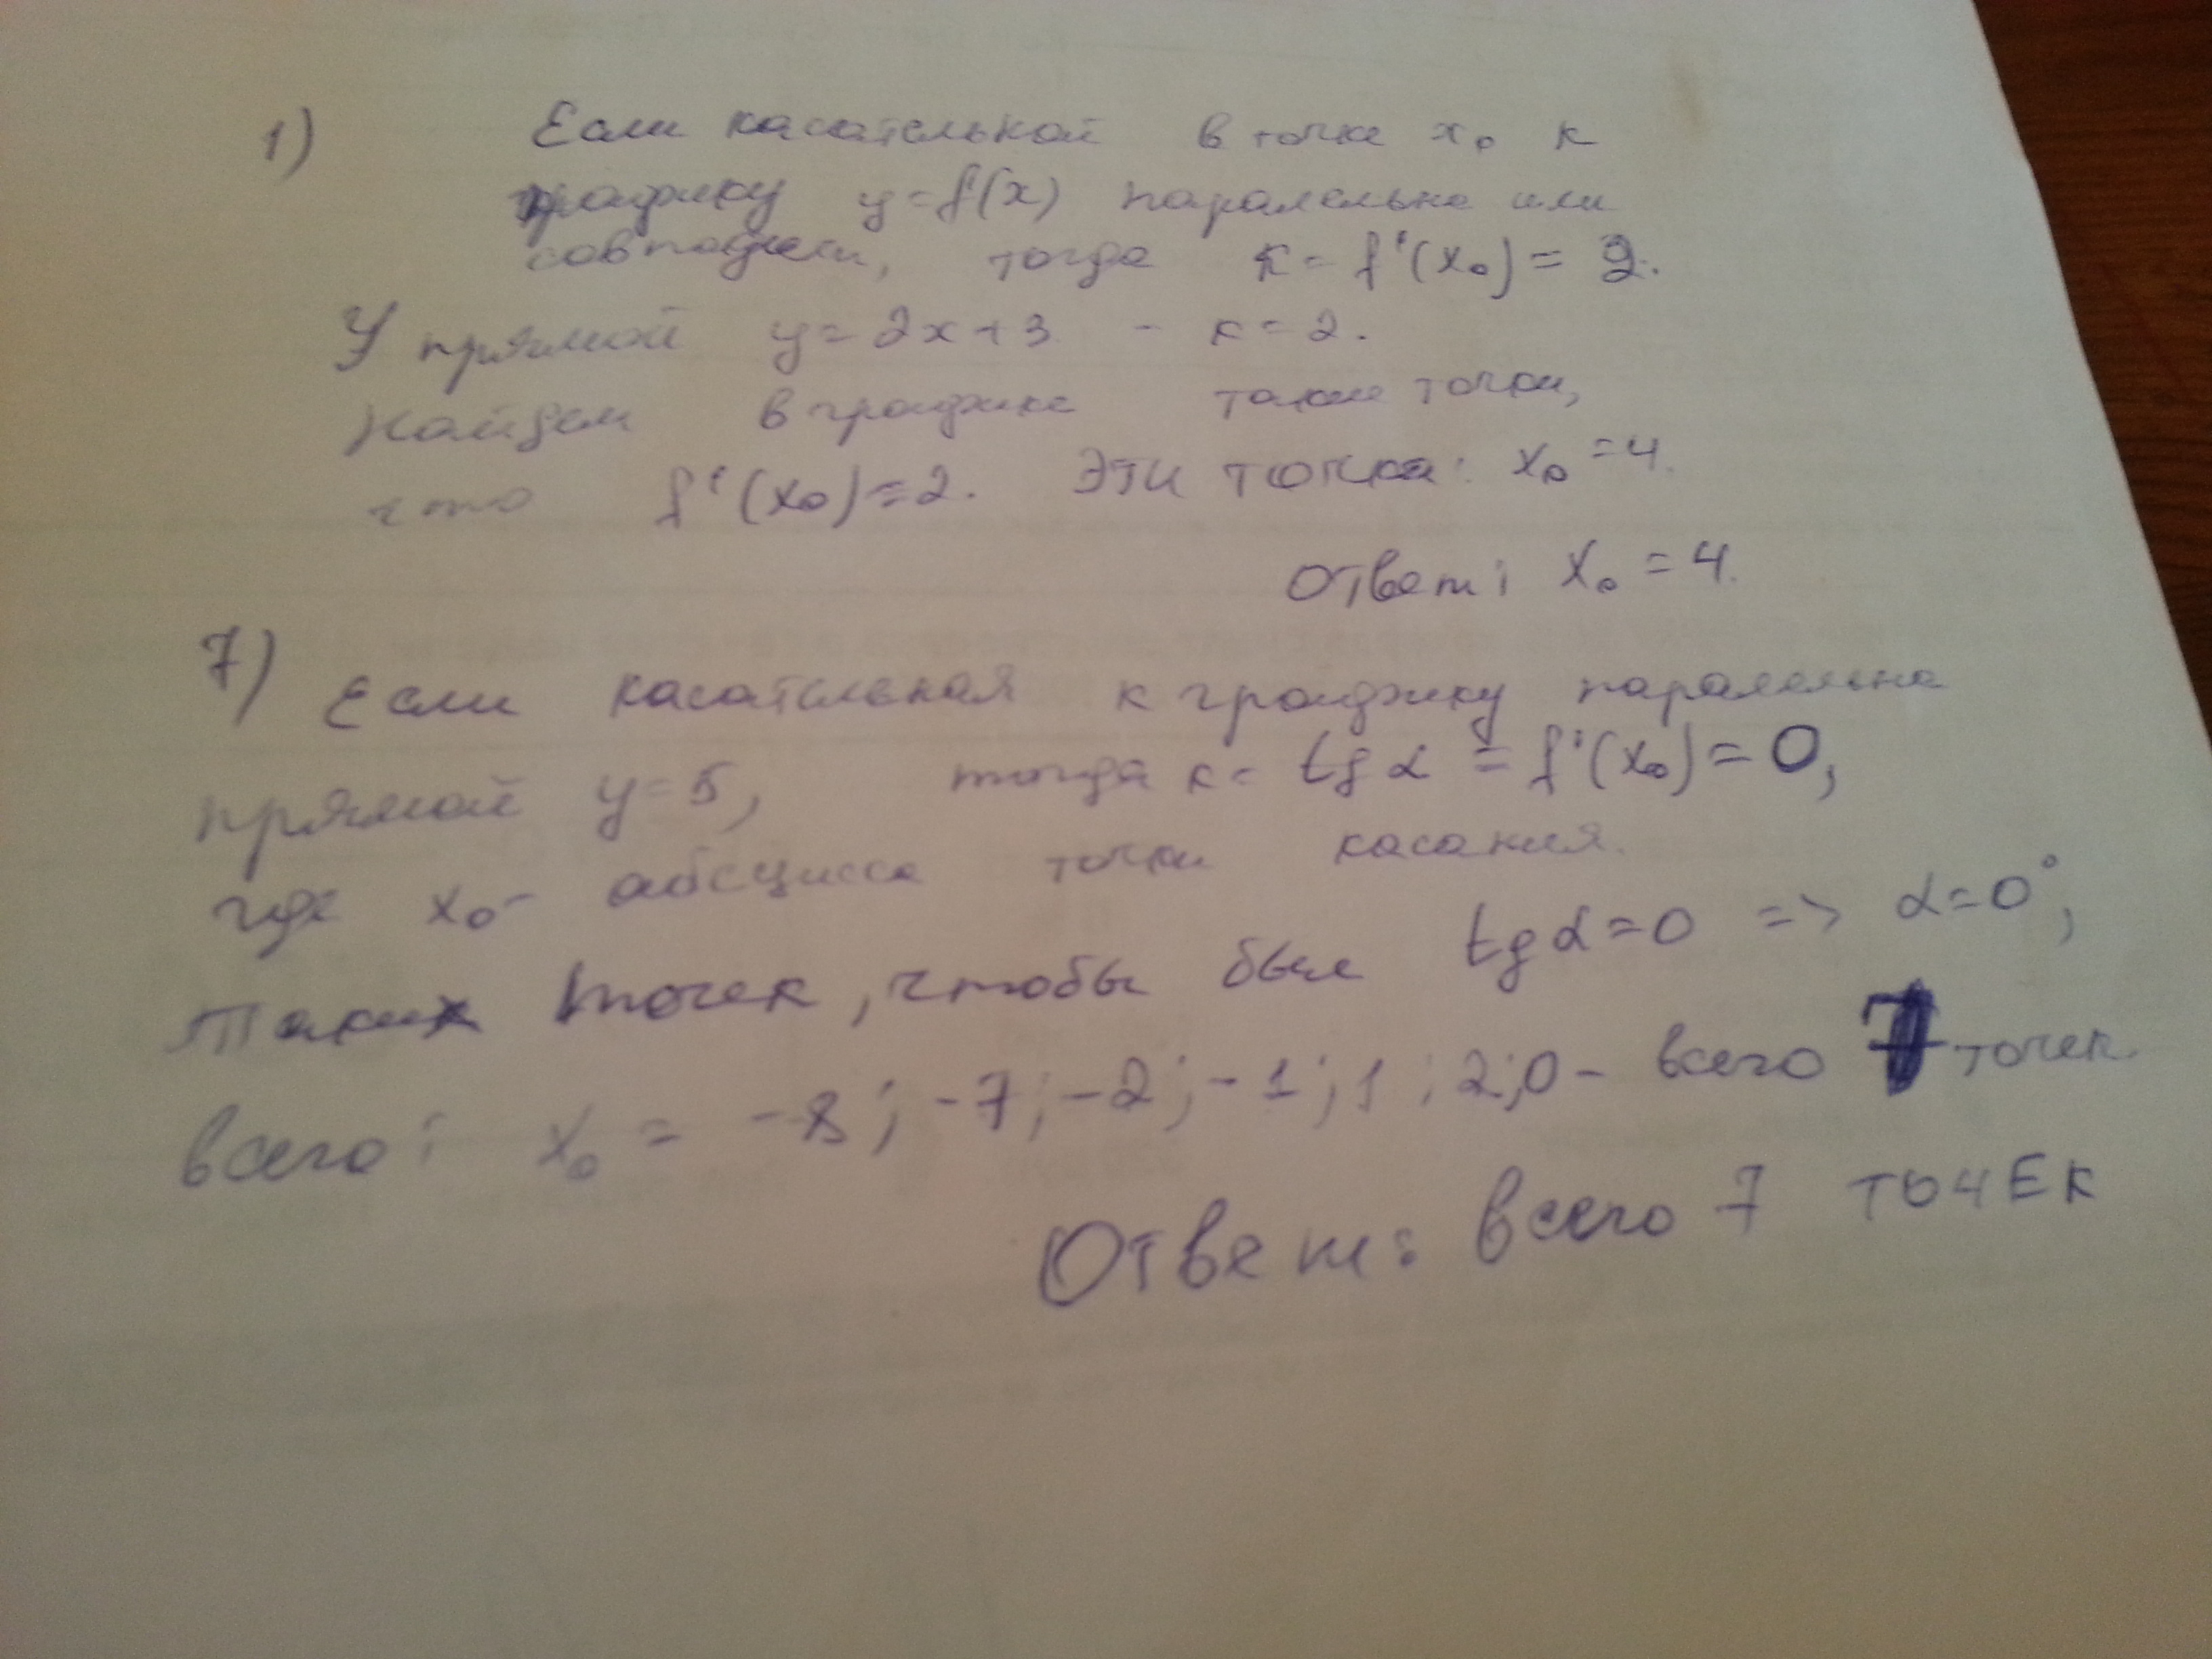 1) Если касательной в точке x₀ к
графику y=f(x) паралельна или
совпадает, тогда к= f'(x₀)= 2.
У прямой y=2x+3 - к=2.
Найдем в графике такие точки,
что f'(x₀)=2. Эти точки: x₀=4.
Ответ: x₀=4.
7) Если касательная к графику паралельна
прямой y=5, тогда к= tg α = f'(x₀)=0,
где x₀- абсцисса точки касания.
Таких точек, чтобы был tg α=0 => α=0°,
всего: x₀ = -8; -7; -2; -1; 1; 2; 0 - всего 7 точек
Ответ: всего 7 точек